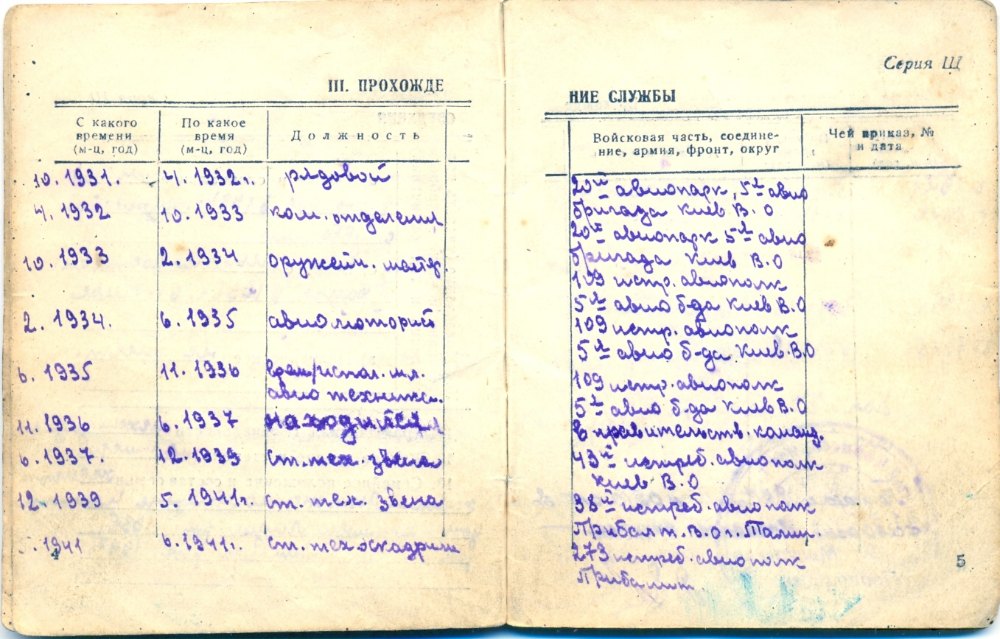 Серия Щ
III. ПРОХОЖДЕ
НИЕ СЛУЖБЫ
С какого времени (м-ц, год)
По какое время (м-ц, год)
Должность
Войсковая часть, соедине-
ние, армия, фронт, округ
Чей приказ, №
и дата
10.1931. 4.1932г. рядовой 20й авиопарк, 5я авио
бригада Киев В.О
4.1932 10.1933 ком. отделения 20й авиопарк 5я авио
бригада Киев В.О
10.1933 2.1934 оружейн. мастер. 109 истр. авиополк
5я авио б-да Киев В.О
2.1934. 6.1935 авиомоторист 109 истр. авиополк
5я авио б-да Киев В.О
6.1935 11.1936 мл. 109 истр. авиополк
авио техника. 5я авио б-да Киев В.О
11.1936 6.1937 находился в правительств. команд.
6.1937. 12.1939 ст. тех. звена 43й истреб. авиополк
Киев В.О
12.1939 5.1941г. ст. тех. звена 38й истреб. авиополк
Прибалт. В.О г. Талин.
5.1941 6.1941г. ст. тех эскадрильи 273 истреб. авиополк
5